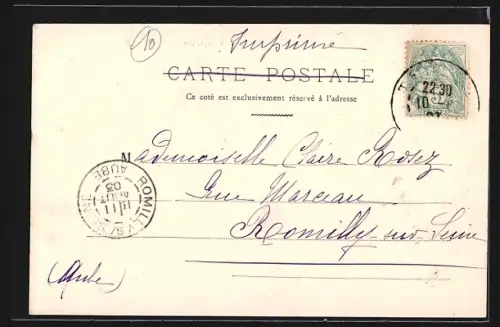 10
Imprimé
CARTE POSTALE
Ce coté est exclusivement réservé à l'adresse
T
22 30
10
03
Mademoiselle Claire Rosez
Rue Marceau
Romilly sur Seine
(Aube)
ROMILLY S/ SEINE
AUBE
11
AOUT
03